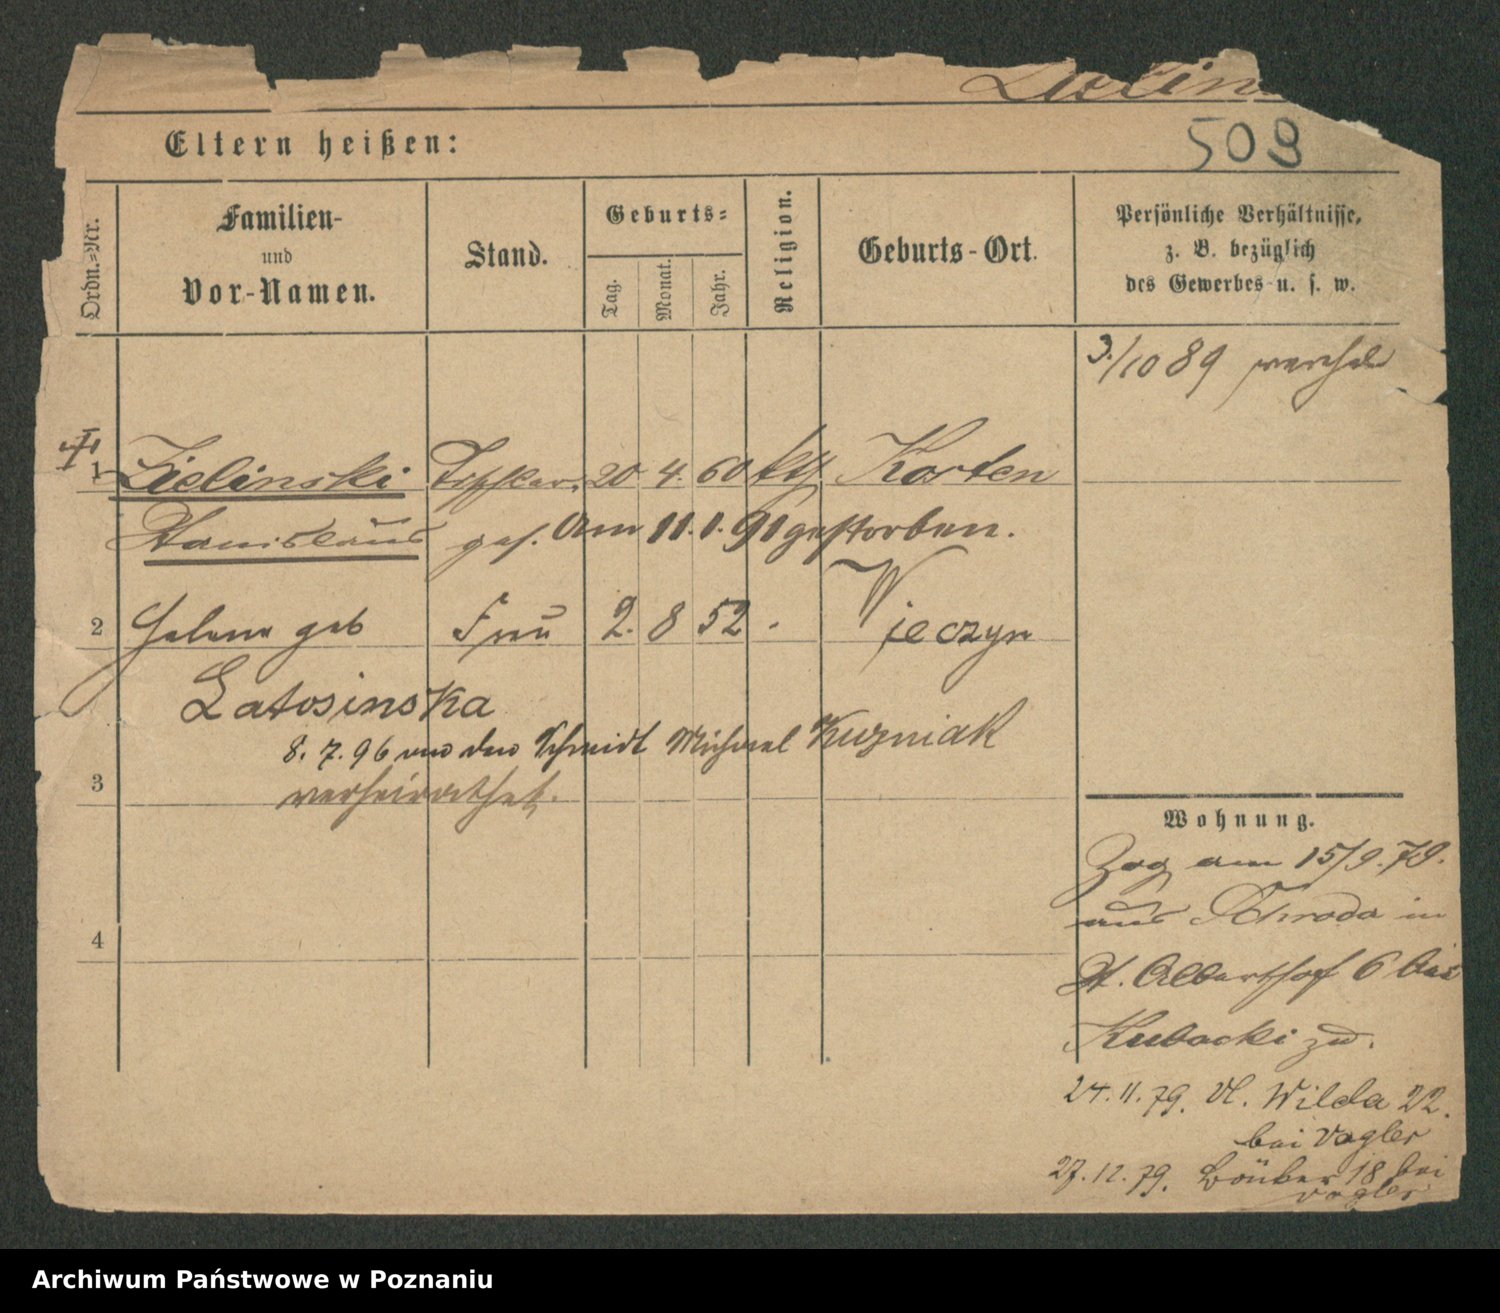 509
Eltern heißen:
Ordn.=Nr.
Familien-
und
Vor-Namen.
Stand.
Geburts=
Tag.
Monat.
Jahr.
Religion.
Geburts-Ort.
Persönliche Verhältnisse,
z. B. bezüglich
des Gewerbes u. s. w.
3./10 89
1 Zielinski Tischler. 20 4. 60 kth Kosten
Stanislaus ges. Am 11. 1. 91 gestorben.
2 Helene geb Frau 2. 8 52 . Wieczyn
Latosinska
8. 7. 96 den Schmidt Michael Kuzniak
verheirathet.
3
4
Wohnung.
Zog am 15/9. 79.
aus Schroda in
St. Adalberthof 6 bei
Kubacki zu.
24. 11. 79. Wilda 22.
bei Vogler
27. 12. 79. 18 bei
Vogler
Archiwum Państwowe w Poznaniu